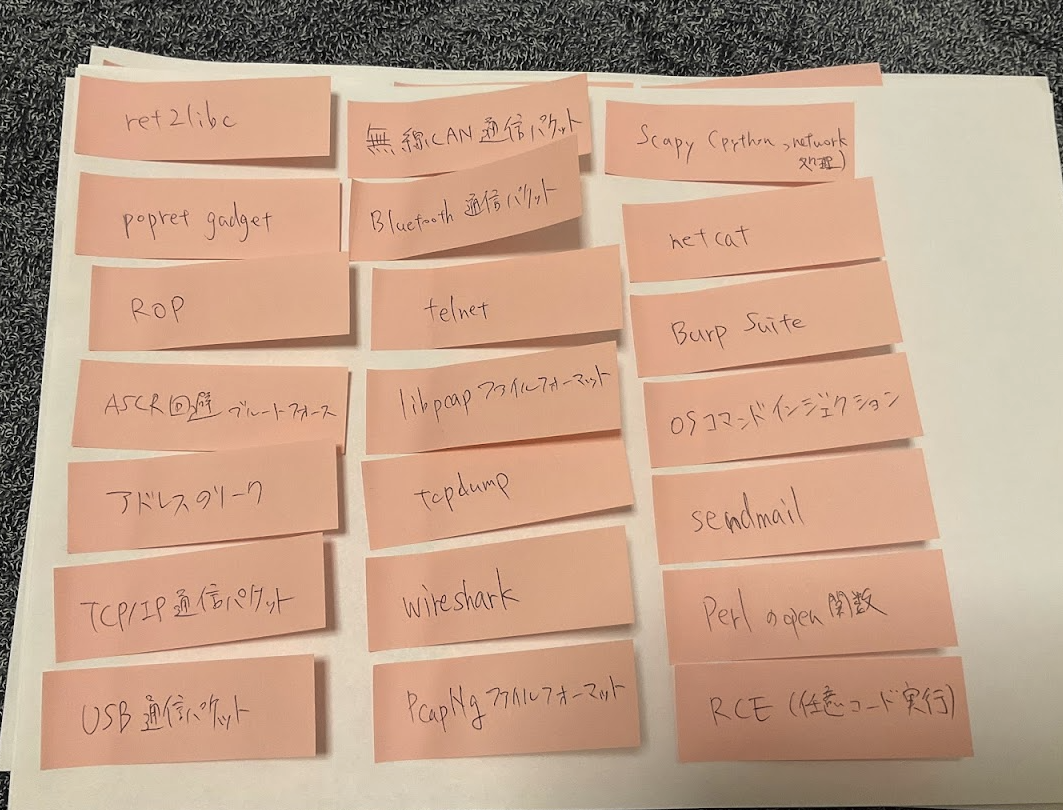 ret2libc
popret gadget
ROP
ASCR回避 ブルートフォース
アドレスのリーク
TCP/IP 通信パケット
USB 通信パケット
無線CAN 通信パケット
Bluetooth 通信パケット
telnet
libpcap ファイルフォーマット
tcpdump
wireshark
PcapNg ファイルフォーマット
Scapy (python, network
処理)
netcat
Burp Suite
OSコマンドインジェクション
sendmail
Perl のopen 関数
RCE (任意コード実行)